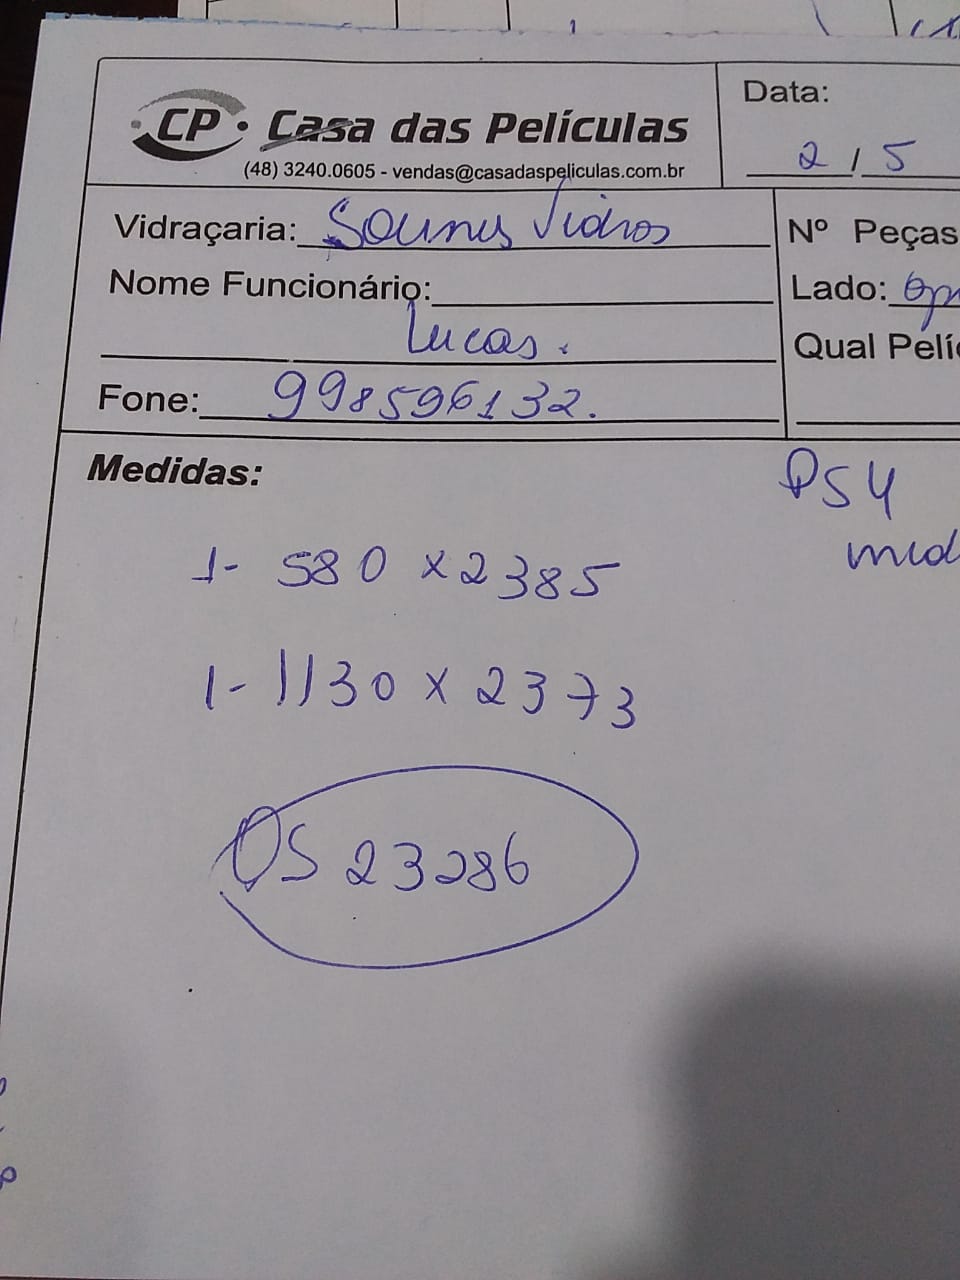 CP Casa das Películas
(48) 3240.0605 - vendas@casadaspeliculas.com.br
Data:
2 / 5
Vidraçaria: Vidros
Nº Peças
Nome Funcionário:
Lado:
Lucas.
Qual Pelí
Fone: 998596132.
Medidas:
PS4
med
1- 580 x 2385
1- 1130 x 2373
OS 23286